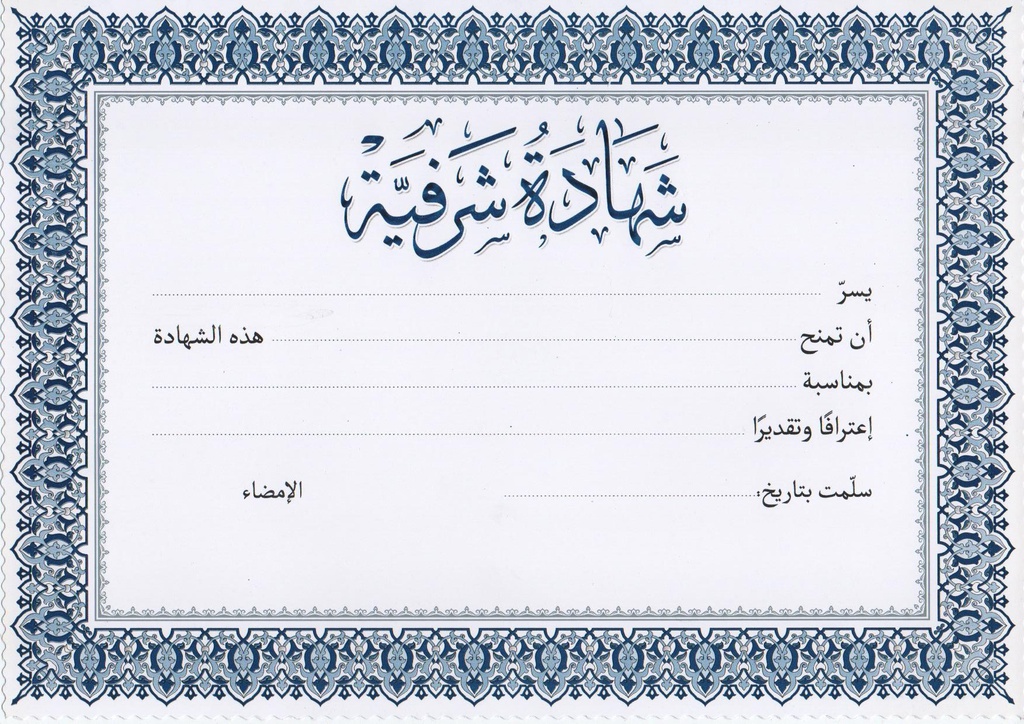 شَهَادَةُ شَرَفِيَّة
يسرّ ........................................
أن تمنح ........................................ هذه الشهادة
بمناسبة ........................................
إعترافًا وتقديرًا ........................................
سلّمت بتاريخ: ........................................ الإمضاء